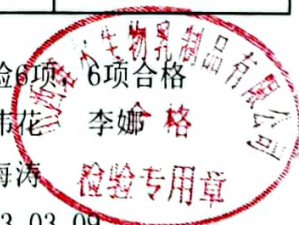 检6项，6项合格
伟花 李娜
海涛
3.03.09
生物乳制品有限公司
合格
检验专用章